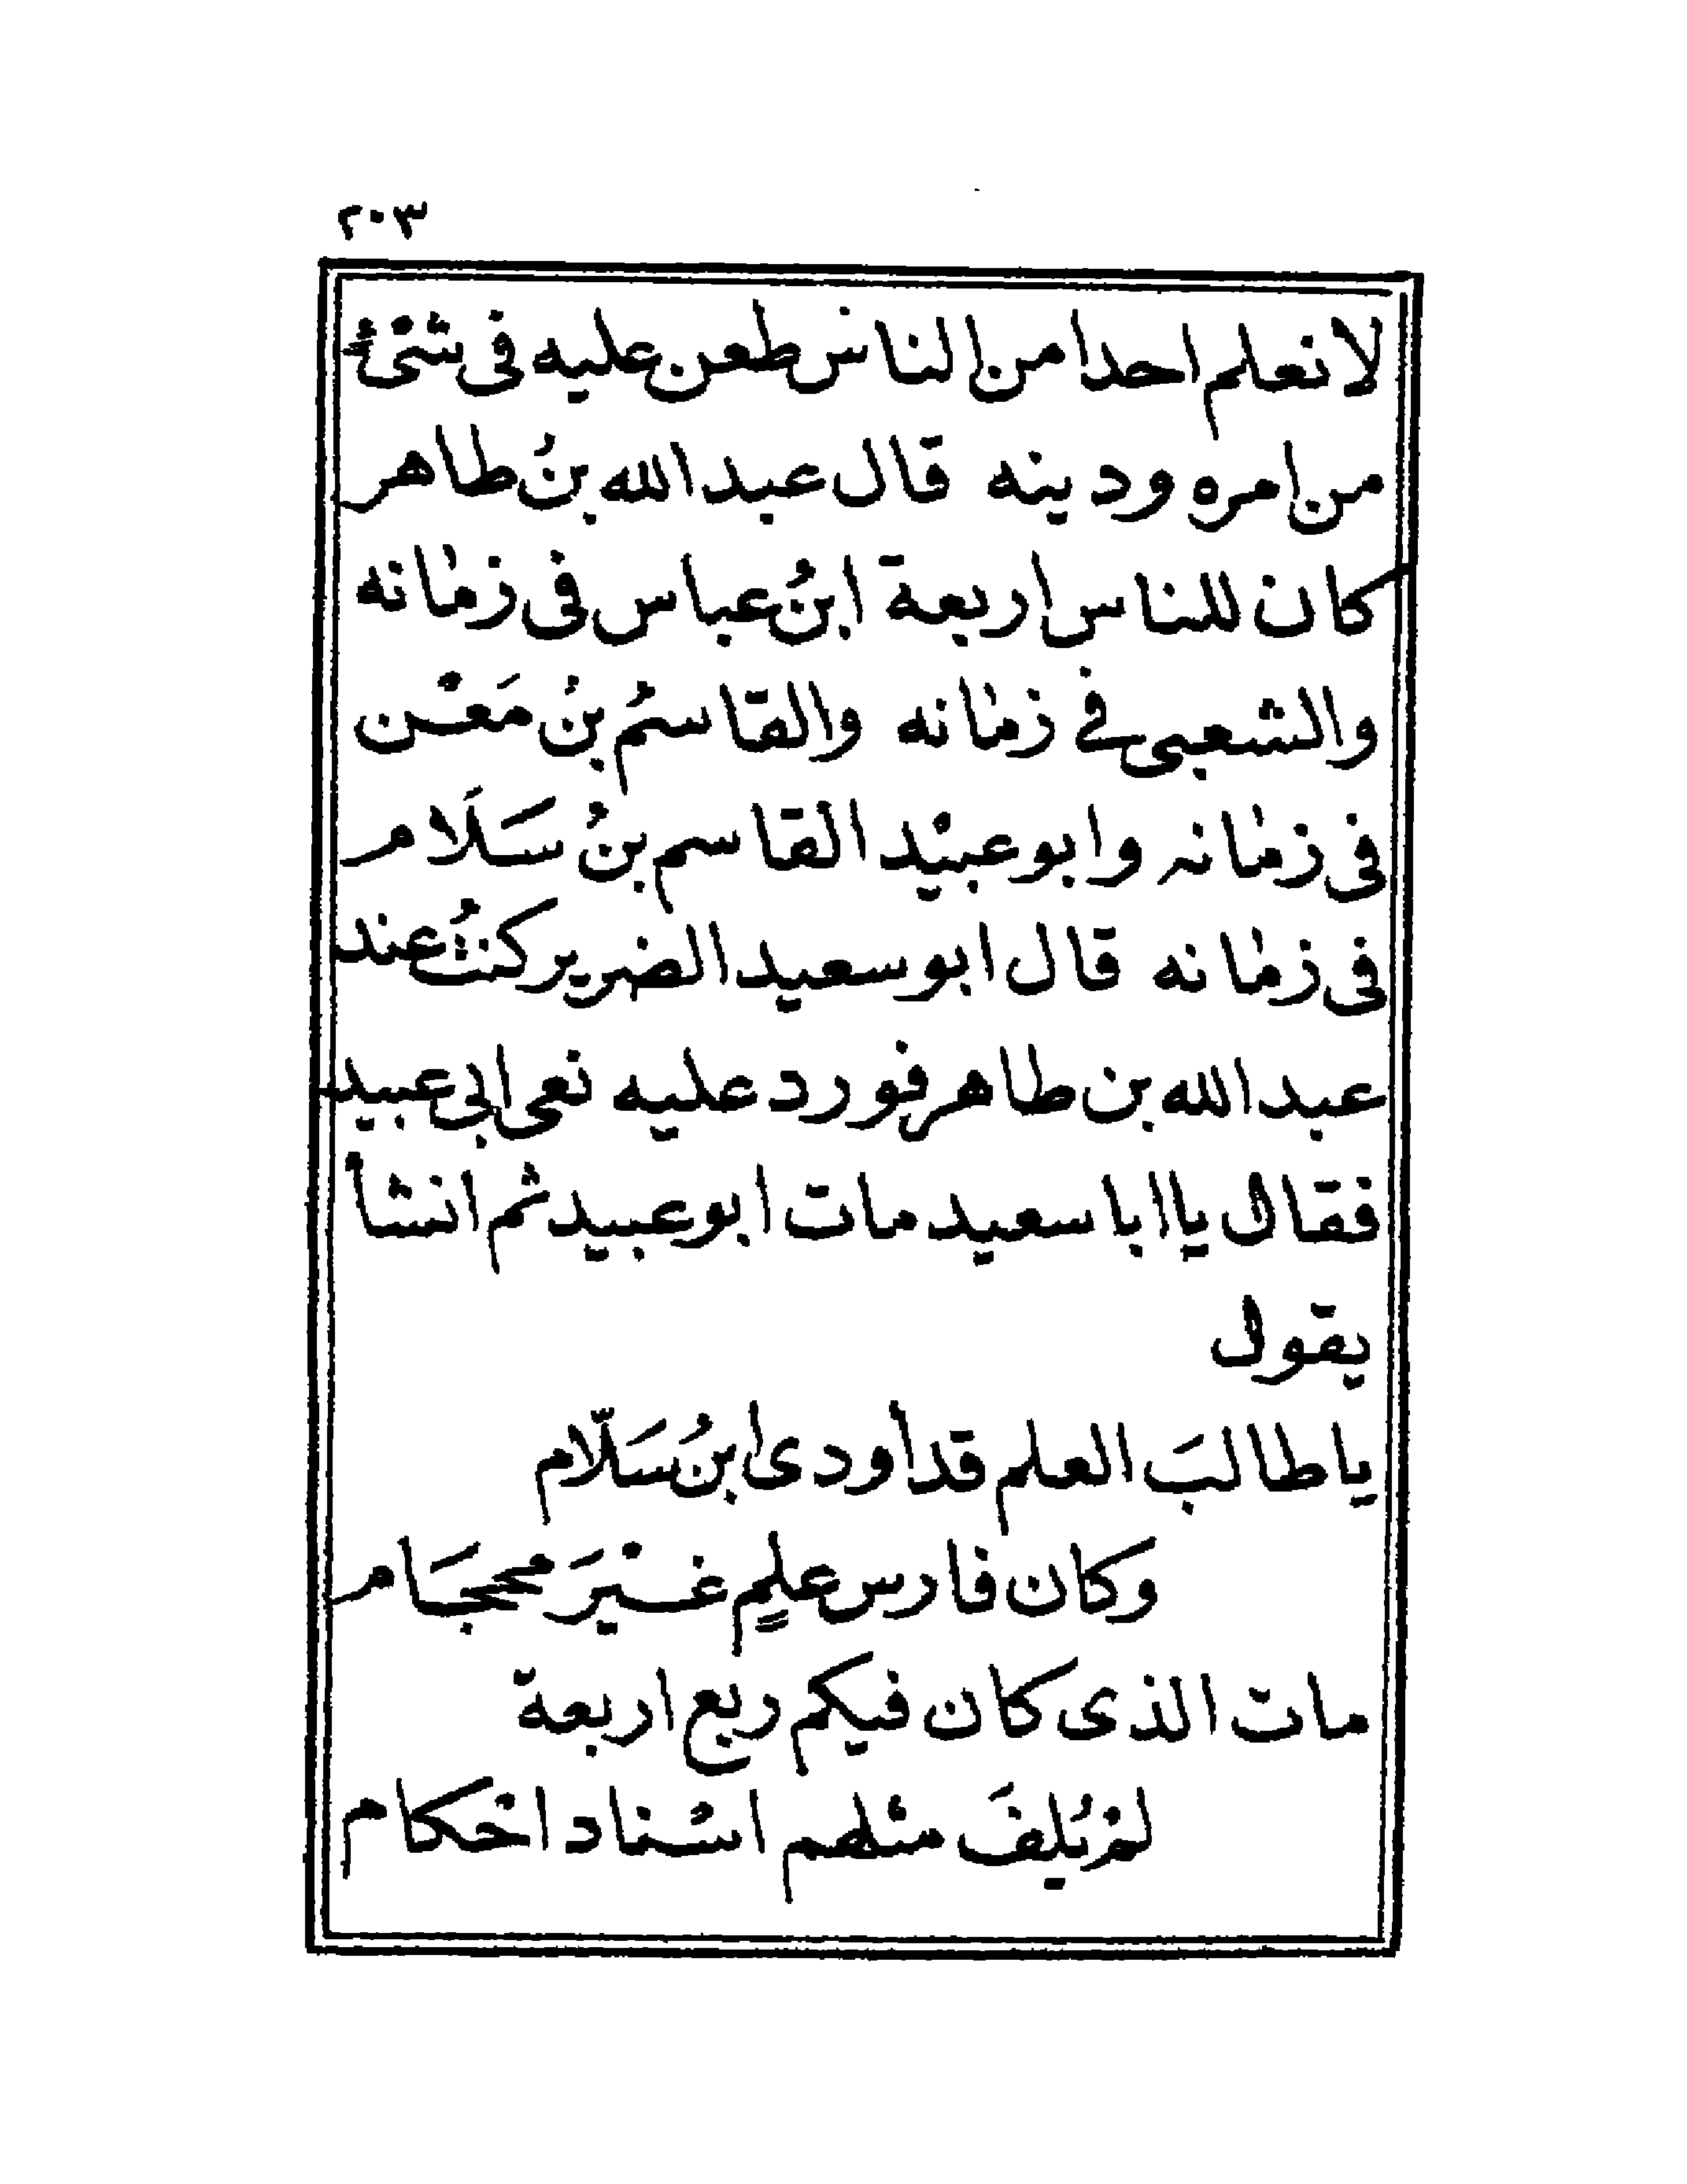 ٢٠٣
لا نعلم احدا من الناس طعن عليه فى شئ
من امره ودينه قال عبد الله بنُ طاهر
كان للناس اربعة ابنُ عباس فى زمانه
والشعبى فى زمانه والقاسمُ بنُ مَعْن
فى زمانه وابو عبيْد القاسم بنُ سَلَام
فى زمانه قال ابو سعيد الضرير كنتُ عند
عبد الله بن طاهر فورد عليه نعى ابى عبيد
فقال يا ابا سعيد مات ابو عبيد ثم انشأ
يقول
يا طالبَ العلم قد أودى ابنُ سَلّام
وكان فارس علمٍ غيْرَ محجَام
مات الذى كان فيكم ربع اربعة
لم يُلفَ مثلهم اسْناد احْكام